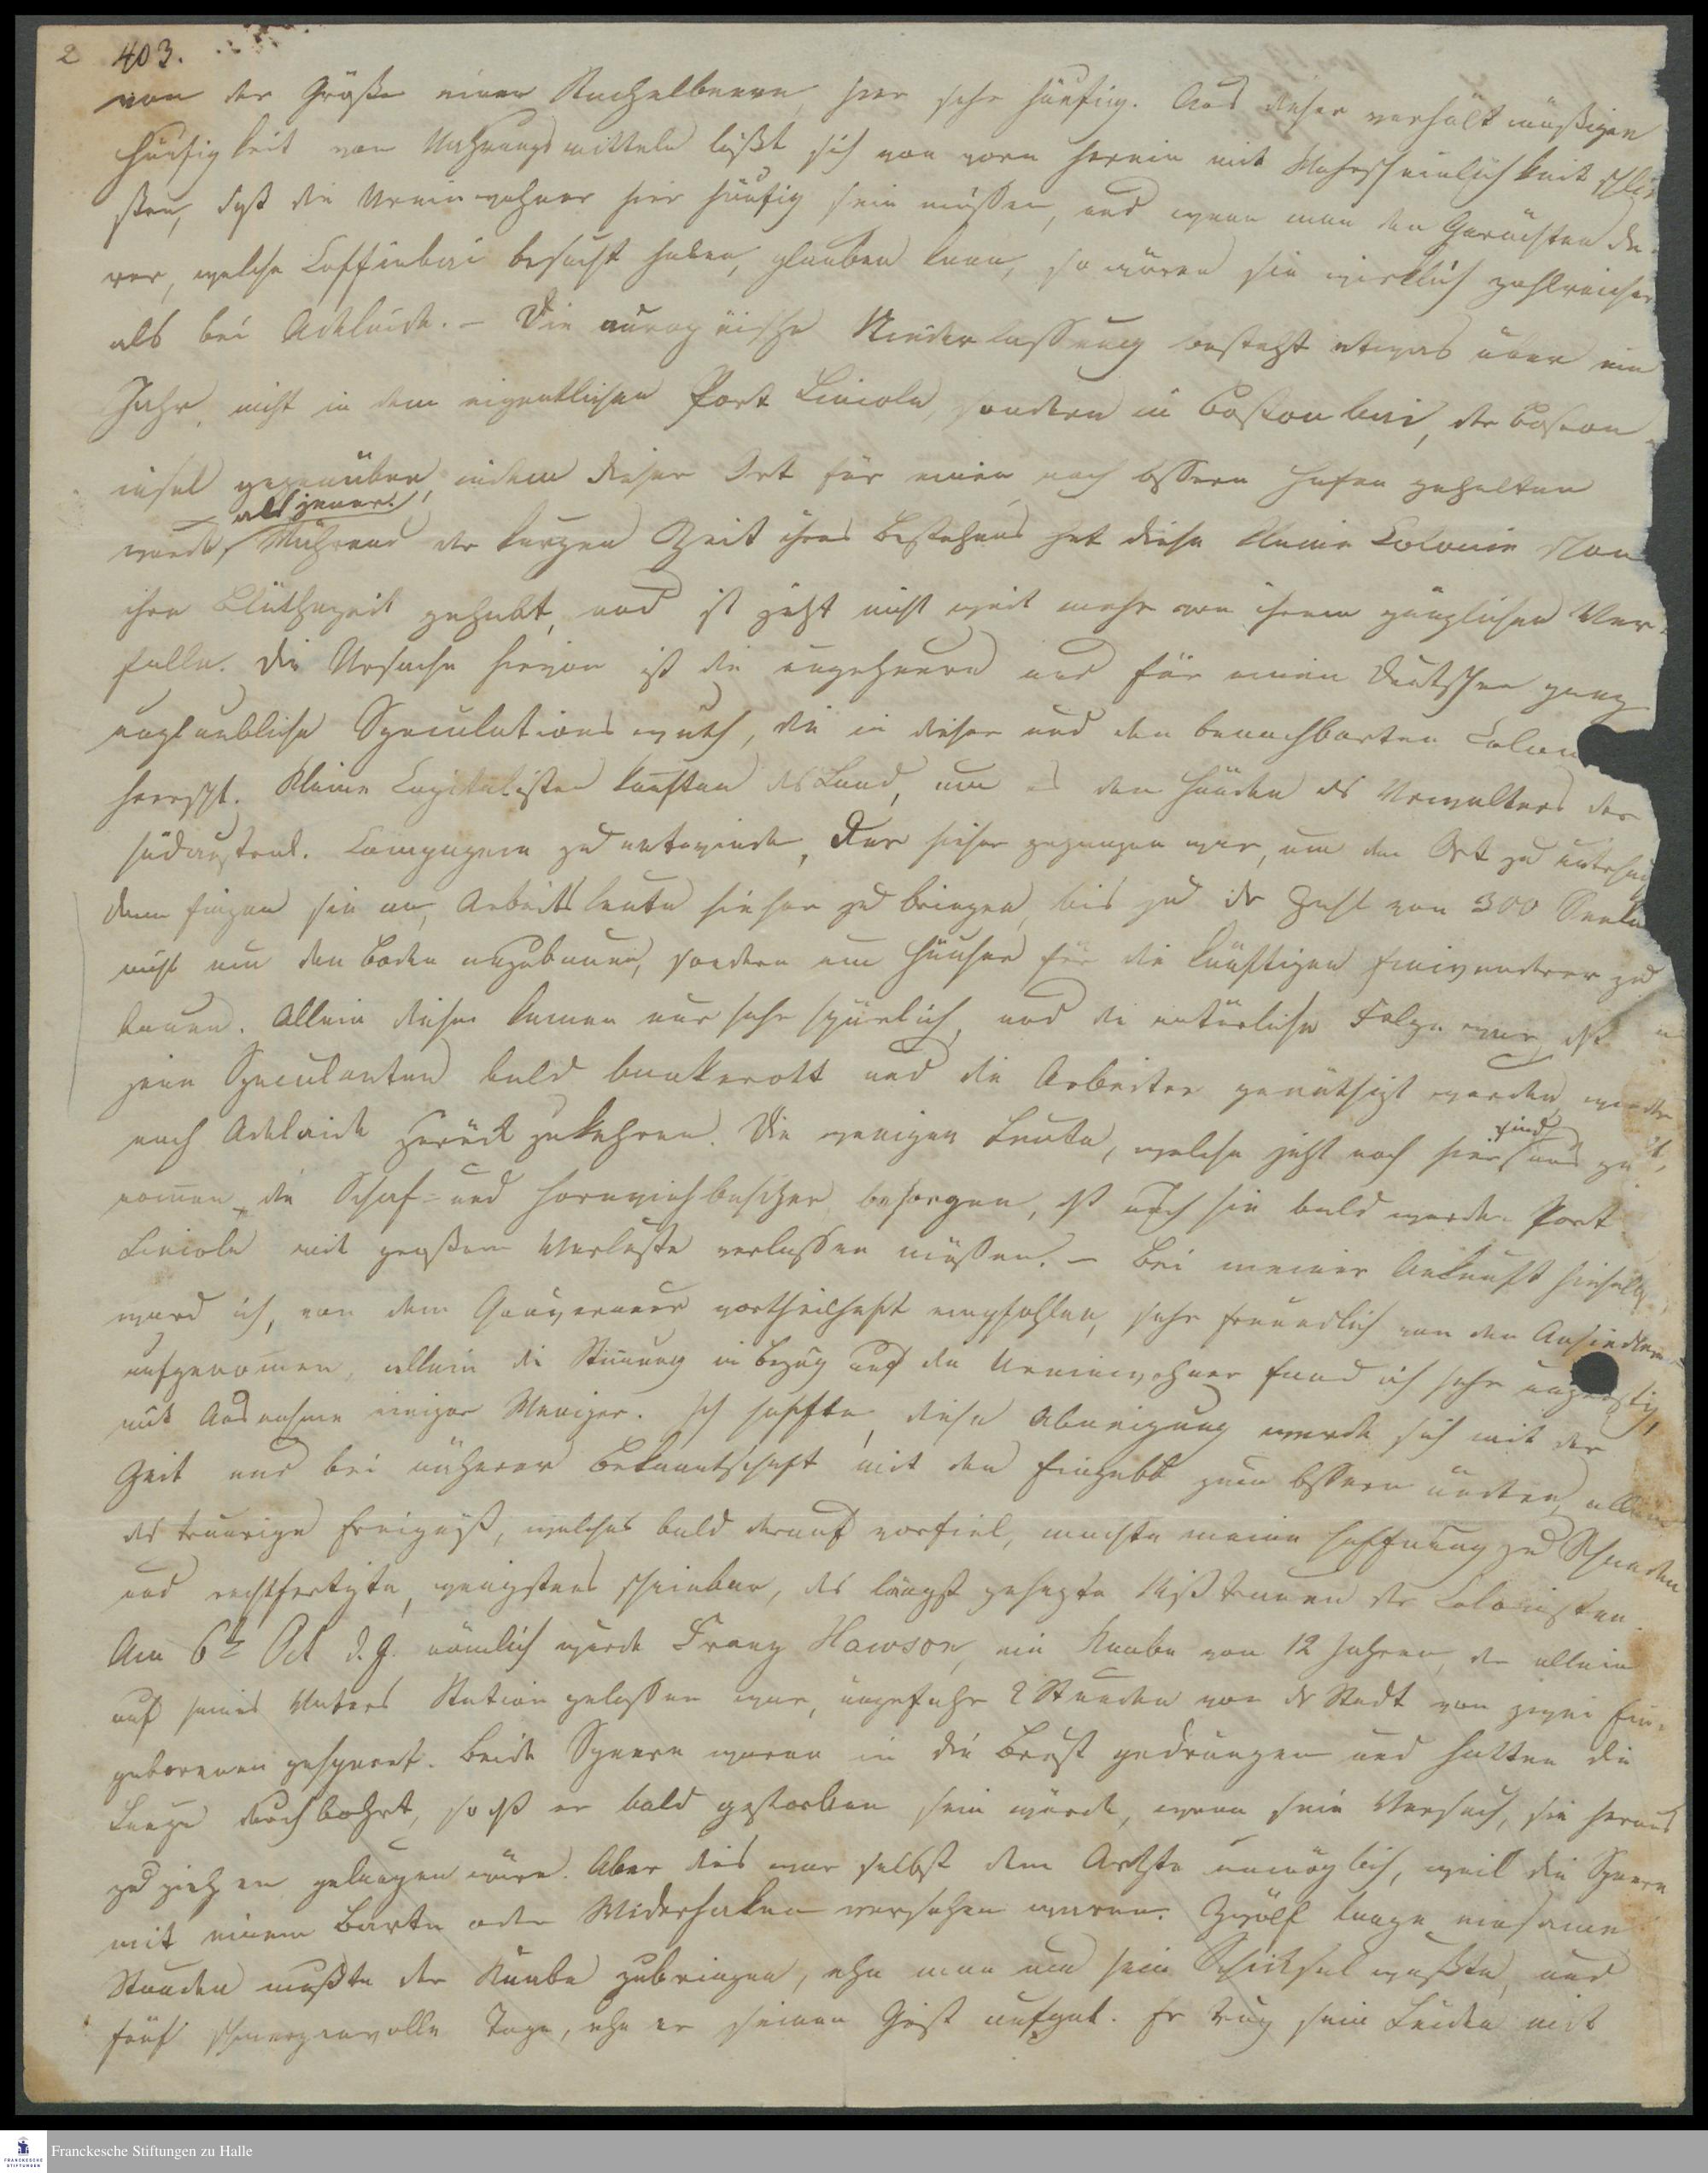 2 403.
von der Größe einer Stachelbeere, hier sehr häufig. Aus dieser verhältmäßigen
Häufigkeit von Nahrungsmitteln läßt sich von vorn herein mit Wahrscheinlichkeit schlie
ßen, daß die Ureinwohner hier häufig sein müssen, und wenn man den Gerüchten de
rer, welche Coffinbai besucht haben, glauben kann, so wären sie wirklich zahlreicher
als bei Adelaide. – Die europäische Niederlassung besteht etwas über ein
Jahr, nicht in dem eigentlichen Port Lincoln, sondern in Bostonbai, der Boston
insel gegenüber, indem dieser Ort für einen noch bessern Hafen gehalten
als jener.
wurde, Während der kurzen Zeit ihres Bestehens hat diese kleine Colonie schon
ihre Blüthezeit gehabt, und ist jetzt nicht weit mehr von ihrem gänzlichen Ver-
falle. Die Ursache hievon ist die ungeheure und für einen Deutschen ganz
unglaubliche Speculationswuth, die in dieser und den benachbarten Colon
herrscht. Kleine Capitalisten kauften das Land, um es den Händen des Verwalters der
südaustral. Compagnie zu entwinden, der hieher gegangen war, um den Ort zu untersuch
dann fingen sie an, Arbeitsleute hieher zu bringen, bis zu der Zahl von 300 Seelen
nicht um den Boden anzubauen, sondern um Häuser für die künftigen Einwanderer zu
bauen. Allein diese kamen nur sehr spärlich, und die natürliche Folge war, daß
jene Speculanten bald bankerott und die Arbeiter genöthigt wurden, wieder
nach Adelaide zurückzukehren. Die wenigen Leute, welche jetzt noch hier sind
nomen die Schaf- und Hornviehbesitzer besorgen, daß auch sie bald werden Port
Lincoln mit großem Verluste verlassen müssen. – Bei meiner Ankunft hieselbst
ward ich, von dem Gouverneur vortheilhaft empfohlen, sehr freundlich von den Ansiedlern
aufgenomen, allein die Stimung in Bezug auf die Ureinwohner fand ich sehr ungünstig,
mit Ausnahme einiger Weniger. Ich hoffte, diese Abneigung werde sich mit der
Zeit und bei näherer Bekanntschaft mit den Eingebb zum bessern ändern, allein
das traurige Ereigniß, welches bald darauf vorfiel, machte meine Hoffnung zu Schanden
und rechtfertigte, wenigstens scheinbar, das längst gehegte Mißtrauen der Colonisten.
Am 6t Oct d. J. nämlich wurde Franz Hawson, ein Knabe von 12 Jahren, der allein
auf seines Vaters Station gelassen war, ungefähr 2 Stunden von der Stadt von zwei Ein-
geborenen gespeert. Beide Speere waren in die Brust gedrungen und hatten die
Lunge durchbohrt, so daß er bald gestorben sein würde, wenn sein Versuch, sie heraus
zu ziehen gelungen wäre. Aber dies war selbst dem Arzte unmöglich, weil die Speere
mit einem Barte oder Widerhaken versehen waren. Zwölf lange einsame
Stunden mußte der Knabe zubringen, ehe man um sein Schicksal wußte, und
fünf schmerzenvolle Tage, ehe er seinen Geist aufgab. Er trug sein Leiden mit
Franckesche Stiftungen zu Halle